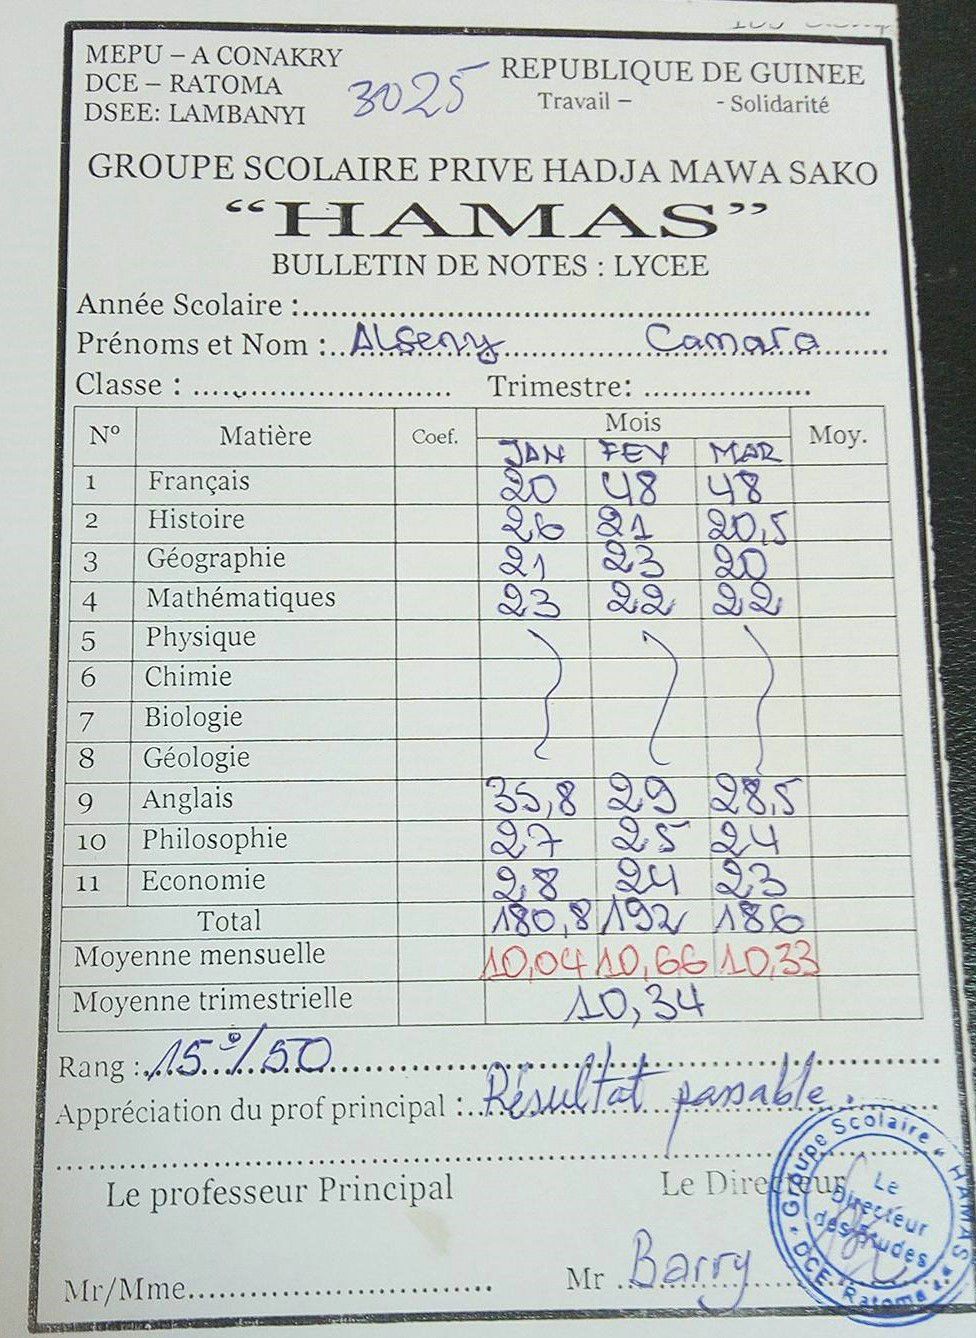 MEPU – A CONAKRY
DCE – RATOMA
DSEE: LAMBANYI
3025
REPUBLIQUE DE GUINEE
Travail – - Solidarité
GROUPE SCOLAIRE PRIVE HADJA MAWA SAKO
“HAMAS”
BULLETIN DE NOTES : LYCEE
Année Scolaire :
Prénoms et Nom : Alseny Camara
Classe : Trimestre:
N° Matière Coef. Mois Moy.
JAN FEV MAR
1 Français 20 48 48
2 Histoire 26 21 20,5
3 Géographie 21 23 20
4 Mathématiques 23 22 22
5 Physique
6 Chimie
7 Biologie
8 Géologie
9 Anglais 35,8 29 28,5
10 Philosophie 27 25 24
11 Economie 28 24 23
Total 180,8 192 186
Moyenne mensuelle 10,04 10,66 10,33
Moyenne trimestrielle 10,34
Rang : 15e/50
Appréciation du prof principal : Résultat passable.
Le professeur Principal Le Directeur
Mr/Mme Mr Barry
Groupe Scolaire "HAMAS"
Le
Directeur
des Etudes
DCE Ratoma